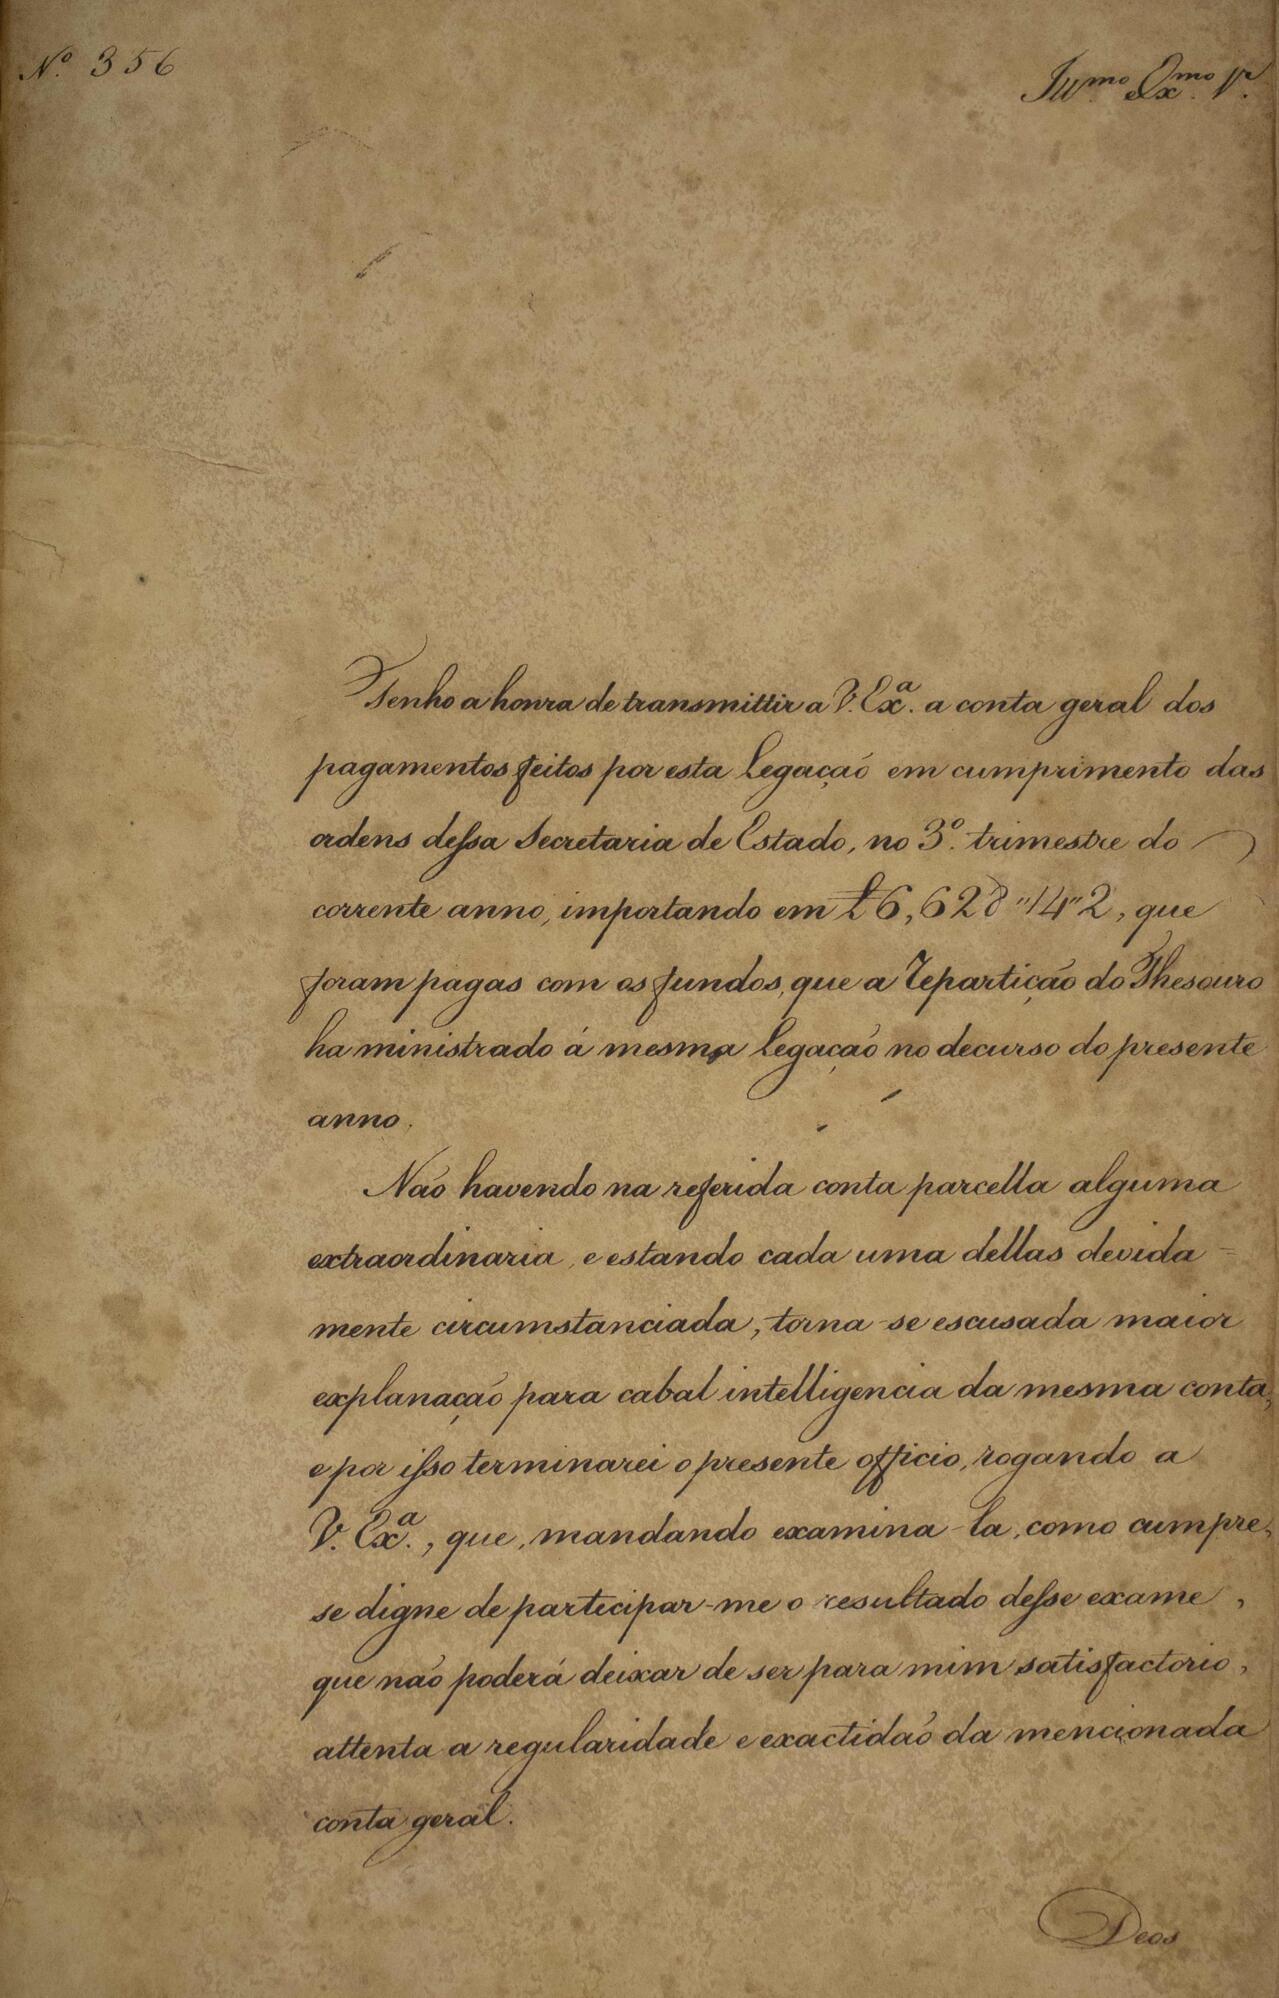 Nº. 356
Illmo. e Exmo. Sr.
Tenho a honra de transmittir a V. Exª. a conta geral dos
pagamentos feitos por esta Legação em cumprimento das
ordens dessa Secretaria de Estado, no 3º. trimestre do
corrente anno, importando em £6,628"14"2, que
foram pagas com os fundos, que a Repartição do Thesouro
ha ministrado á mesma Legação no decurso do presente
anno.
Não havendo na referida conta parcella alguma
extraordinaria, e estando cada uma dellas devida=
mente circumstanciada, torna-se escusada maior
explanação para cabal intelligencia da mesma conta,
e por isso terminarei o presente officio, rogando a
V. Exª., que, mandando examina-la, como cumpre,
se digne de participar-me o resultado desse exame,
que não poderá deixar de ser para mim satisfactorio,
attenta a regularidade e exactidão da mencionada
conta geral.
Deos